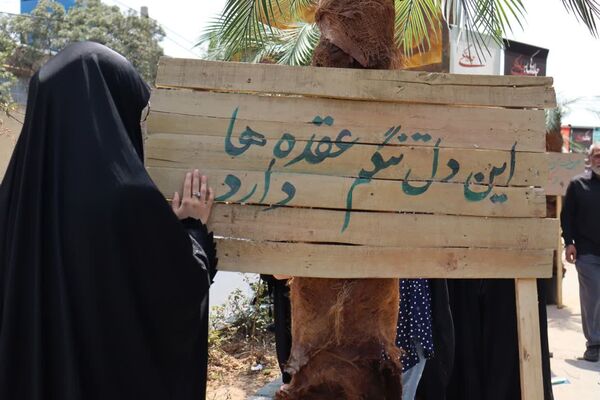 این دل تنگم عقده ها دارد